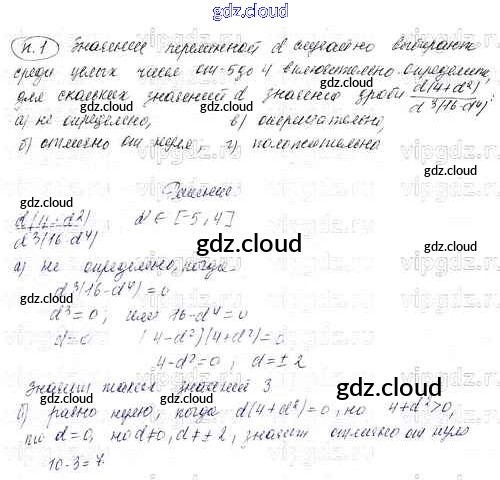 gdz.cloud
п.1 Значение переменной d случайно выбирают
среди целых чисел от -5 до 4 включительно. Определите,
для скольких значений d значение дроби d(4+d²)/d³(16-d⁴):
а) не определено, в) отрицательно,
б) отлично от нуля, г) положительно
Решение
d(4+d²)/d³(16-d⁴) d ∈ [-5, 4]
gdz.cloud
а) не определено, когда
d³(16-d⁴)=0
d³=0; или 16-d⁴=0
d=0 (4-d²)(4+d²)=0
4-d²=0, d=±2
Значит таких значений 3.
б) равно нулю, когда d(4+d²)=0, но 4+d²>0,
то d=0, но d≠0, d≠±2, значит отлично от нуля
10-3=7
gdz.cloud